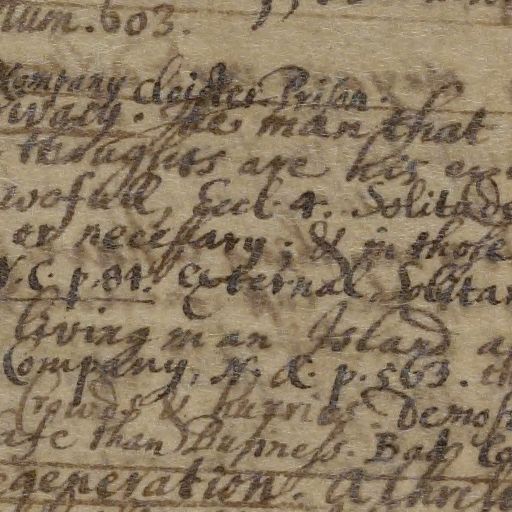 Num. 603.
Company Cloister Prison.
vacy. The man that
thoughts are his
wofull, Eccl. 4. Solitude
or necessary; & in those
N.C. p. 81. External Solitar
living in an Island a
Company, N. C. p. 563.
Crowds & hurries. Demost
ase than Business. Bad Co
egeneration. A Christ